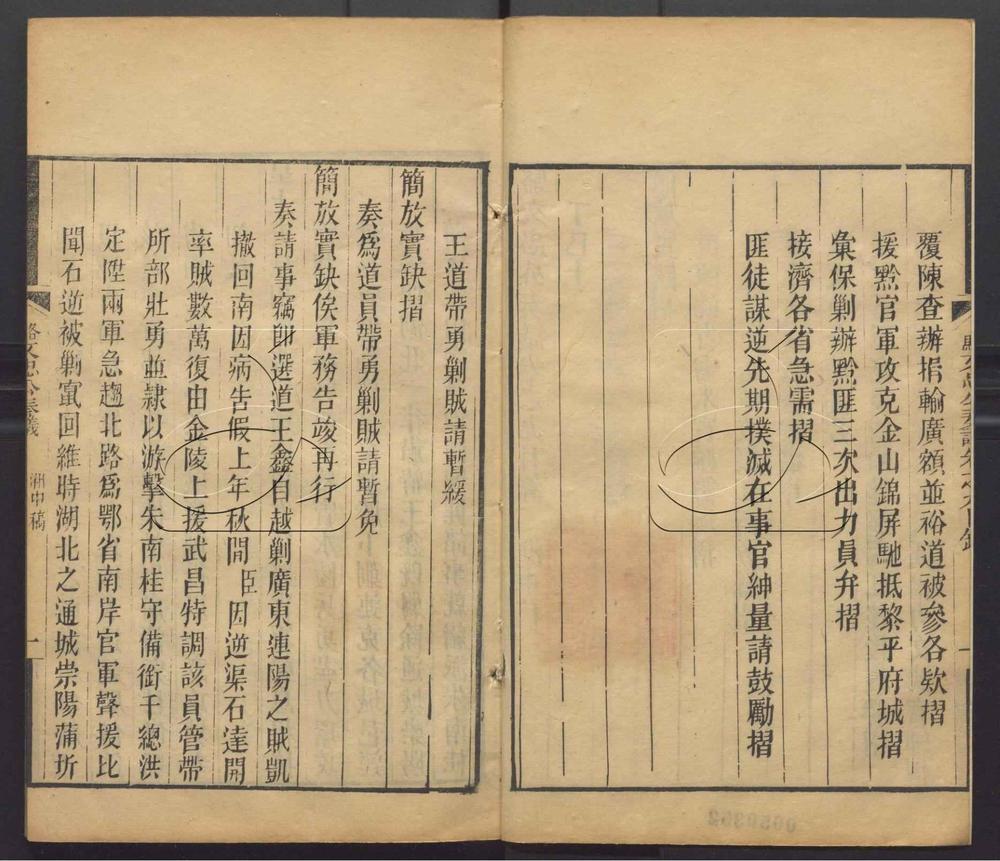 覆陳查辦捐輸廣額並裕道被參各欵摺
援黔官軍攻克金山錦屏馳抵黎平府城摺
彙保剿辦黔匪三次出力員弁摺
接濟各省急需摺
匪徒謀逆先期撲滅在事官紳量請鼓勵摺
王道帶勇剿賊請暫緩
簡放實缺摺
奏爲道員帶勇剿賊請暫免
簡放實缺俟軍務告竣再行
奏請事竊卽選道王鑫自越剿廣東連陽之賊凱
撤回南因病告假上年秋間臣因逆渠石達開
率賊數萬復由金陵上援武昌特調該員管帶
所部壯勇並隷以游擊朱南桂守備銜千總洪
定陞兩軍急趨北路爲鄂省南岸官軍聲援比
聞石逆被剿竄回維時湖北之通城崇陽蒲圻
駱文忠公奏議 湘中稿 一